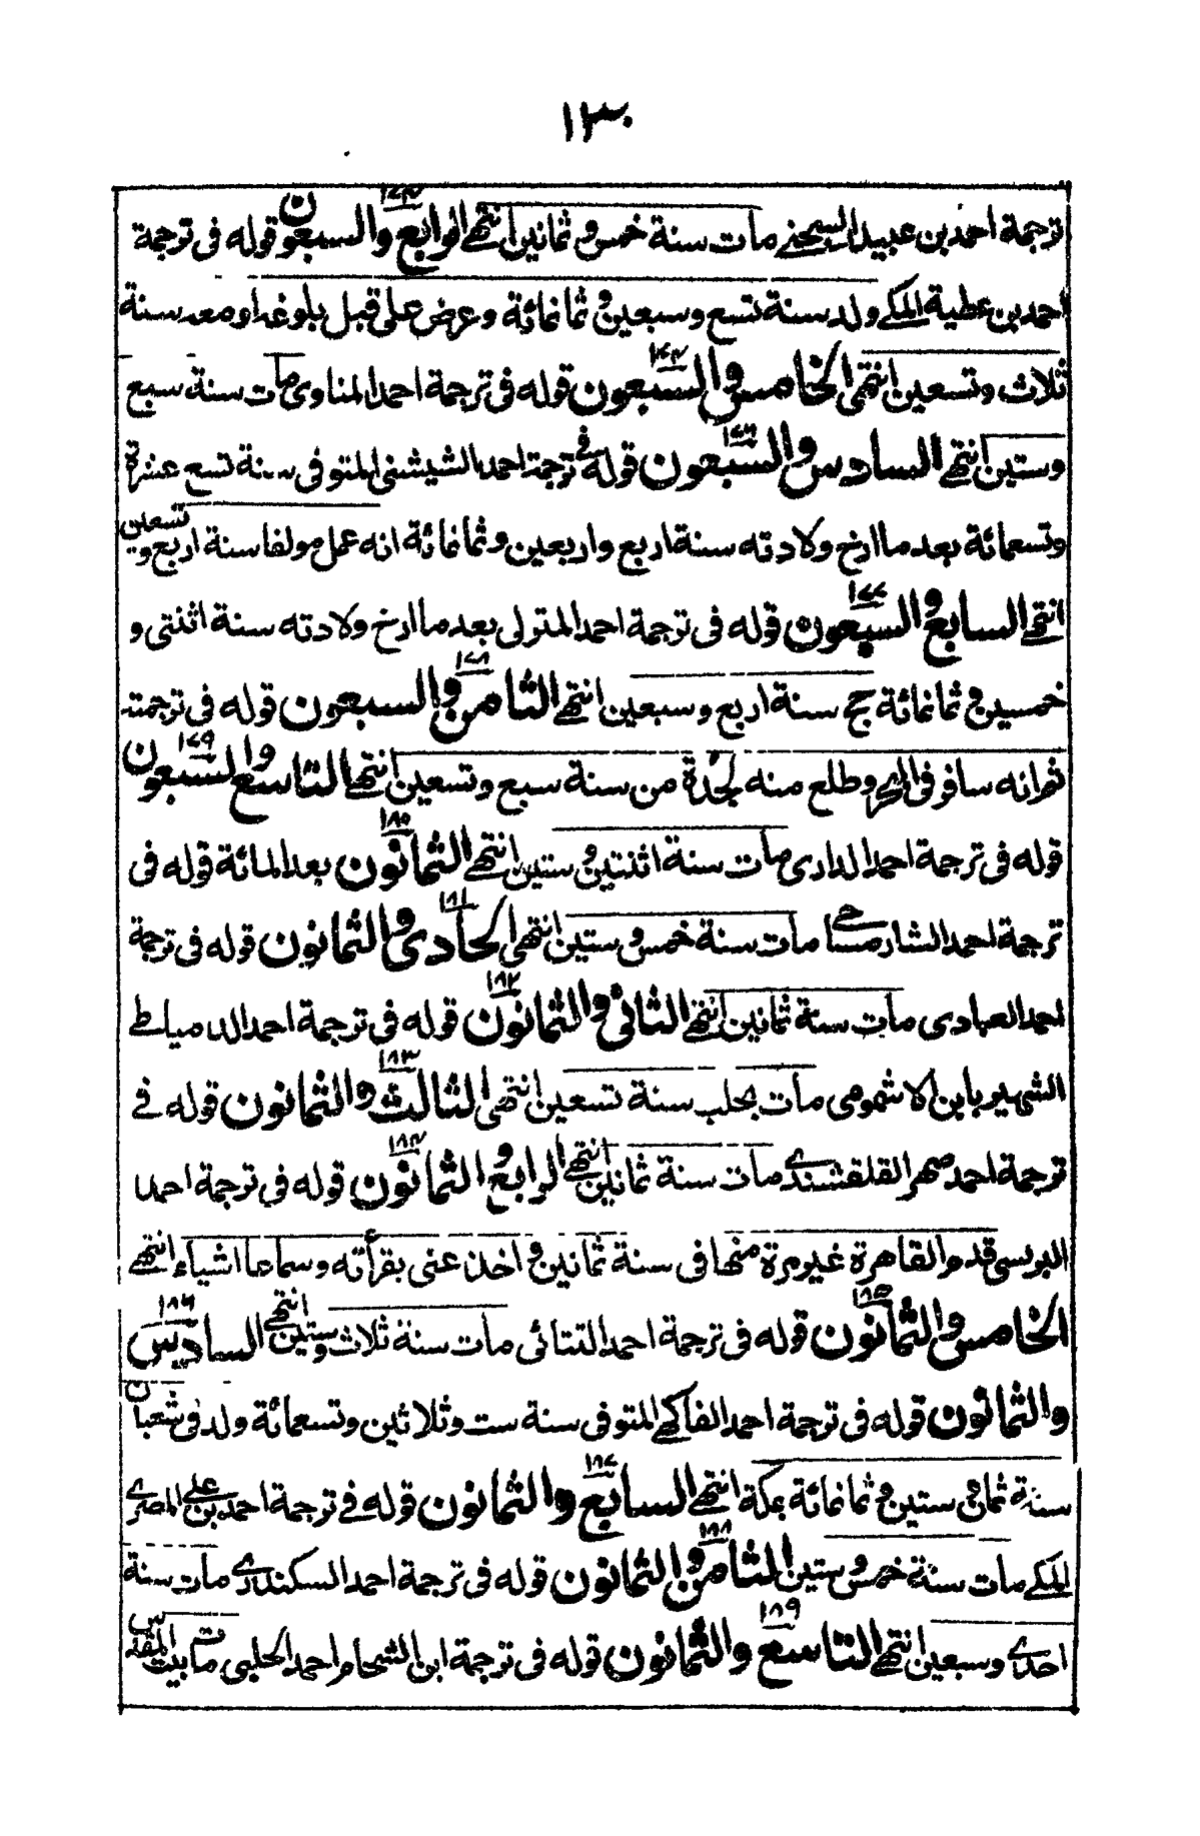 ١٣٠
ترجمة احمد بن عبيد السجيني مات سنة خمس و ثمانين انتهى الرابع والسبعون ١٧٤ قوله فى ترجمة
احمد بن عطية المكي ولد سنة تسع و سبعين و ثمانمائة و عرض على قبل بلوغه او معه سنة
ثلاث و تسعين انتهى الخامس والسبعون قوله فى ترجمة احمد المناوى مات سنة سبع
وستين انتهى السادس والسبعون ١٧٦ قوله فى ترجمة احمد الشيشنى المتوفى سنة تسع عشرة
وتسعمائة بعد ما ارخ ولادته سنة اربع واربعين وثمانمائة انه عمل مولفا سنة اربع و تسعين
انتهى السابع والسبعون ١٧٧ قوله فى ترجمة احمد المتولى بعد ما ارخ ولادته سنة اثنتى و
خمسين و ثمانمائة حج سنة اربع و سبعين انتهى الثامن والسبعون ١٧٨ قوله فى ترجمته
ثم انه سافر فى البحر وطلع منه لجدة من سنة سبع و تسعين انتهى التاسع والسبعون ١٧٩
قوله فى ترجمة احمد الدارى مات سنة اثنتين و ستين انتهى الثمانون ١٨٠ بعد المائة قوله فى
ترجمة احمد الشارمساحي مات سنة خمس و ستين انتهى الحادى والثمانون ١٨١ قوله فى ترجمة
احمد العبادى مات سنة ثمانين انتهى الثانى والثمانون ١٨٢ قوله فى ترجمة احمد الدمياطى
الشهير بابن الاشمومى مات بحلب سنة تسعين انتهى الثالث والثمانون ١٨٣ قوله فى
ترجمة احمد صهر القلقشندي مات سنة ثمانين انتهى الرابع و الثمانون ١٨٤ قوله فى ترجمة احمد
البرنسى قدم القاهرة غير مرة منها فى سنة ثمانين و اخذ عنى بقرأته و سماعا اشياء انتهى
الخامس والثمانون ١٨٥ قوله فى ترجمة احمد التتائى مات سنة ثلاث وستين انتهى السادس ١٨٦
والثمانون قوله فى ترجمة احمد الفاكهي المتوفى سنة ست وثلاثين وتسعمائة ولد فى شعبان
سنة ثمان و ستين و ثمانمائة بمكة انتهى السابع والثمانون ١٨٧ قوله فى ترجمة احمد بن على المصري
المكي مات سنة خمس و ستين الثامن والثمانون ١٨٨ قوله فى ترجمة احمد السكندري مات سنة
احدى و سبعين انتهى التاسع والثمانون ١٨٩ قوله فى ترجمة ابن الشحام احمد الحلبى مات ببيت المقدس